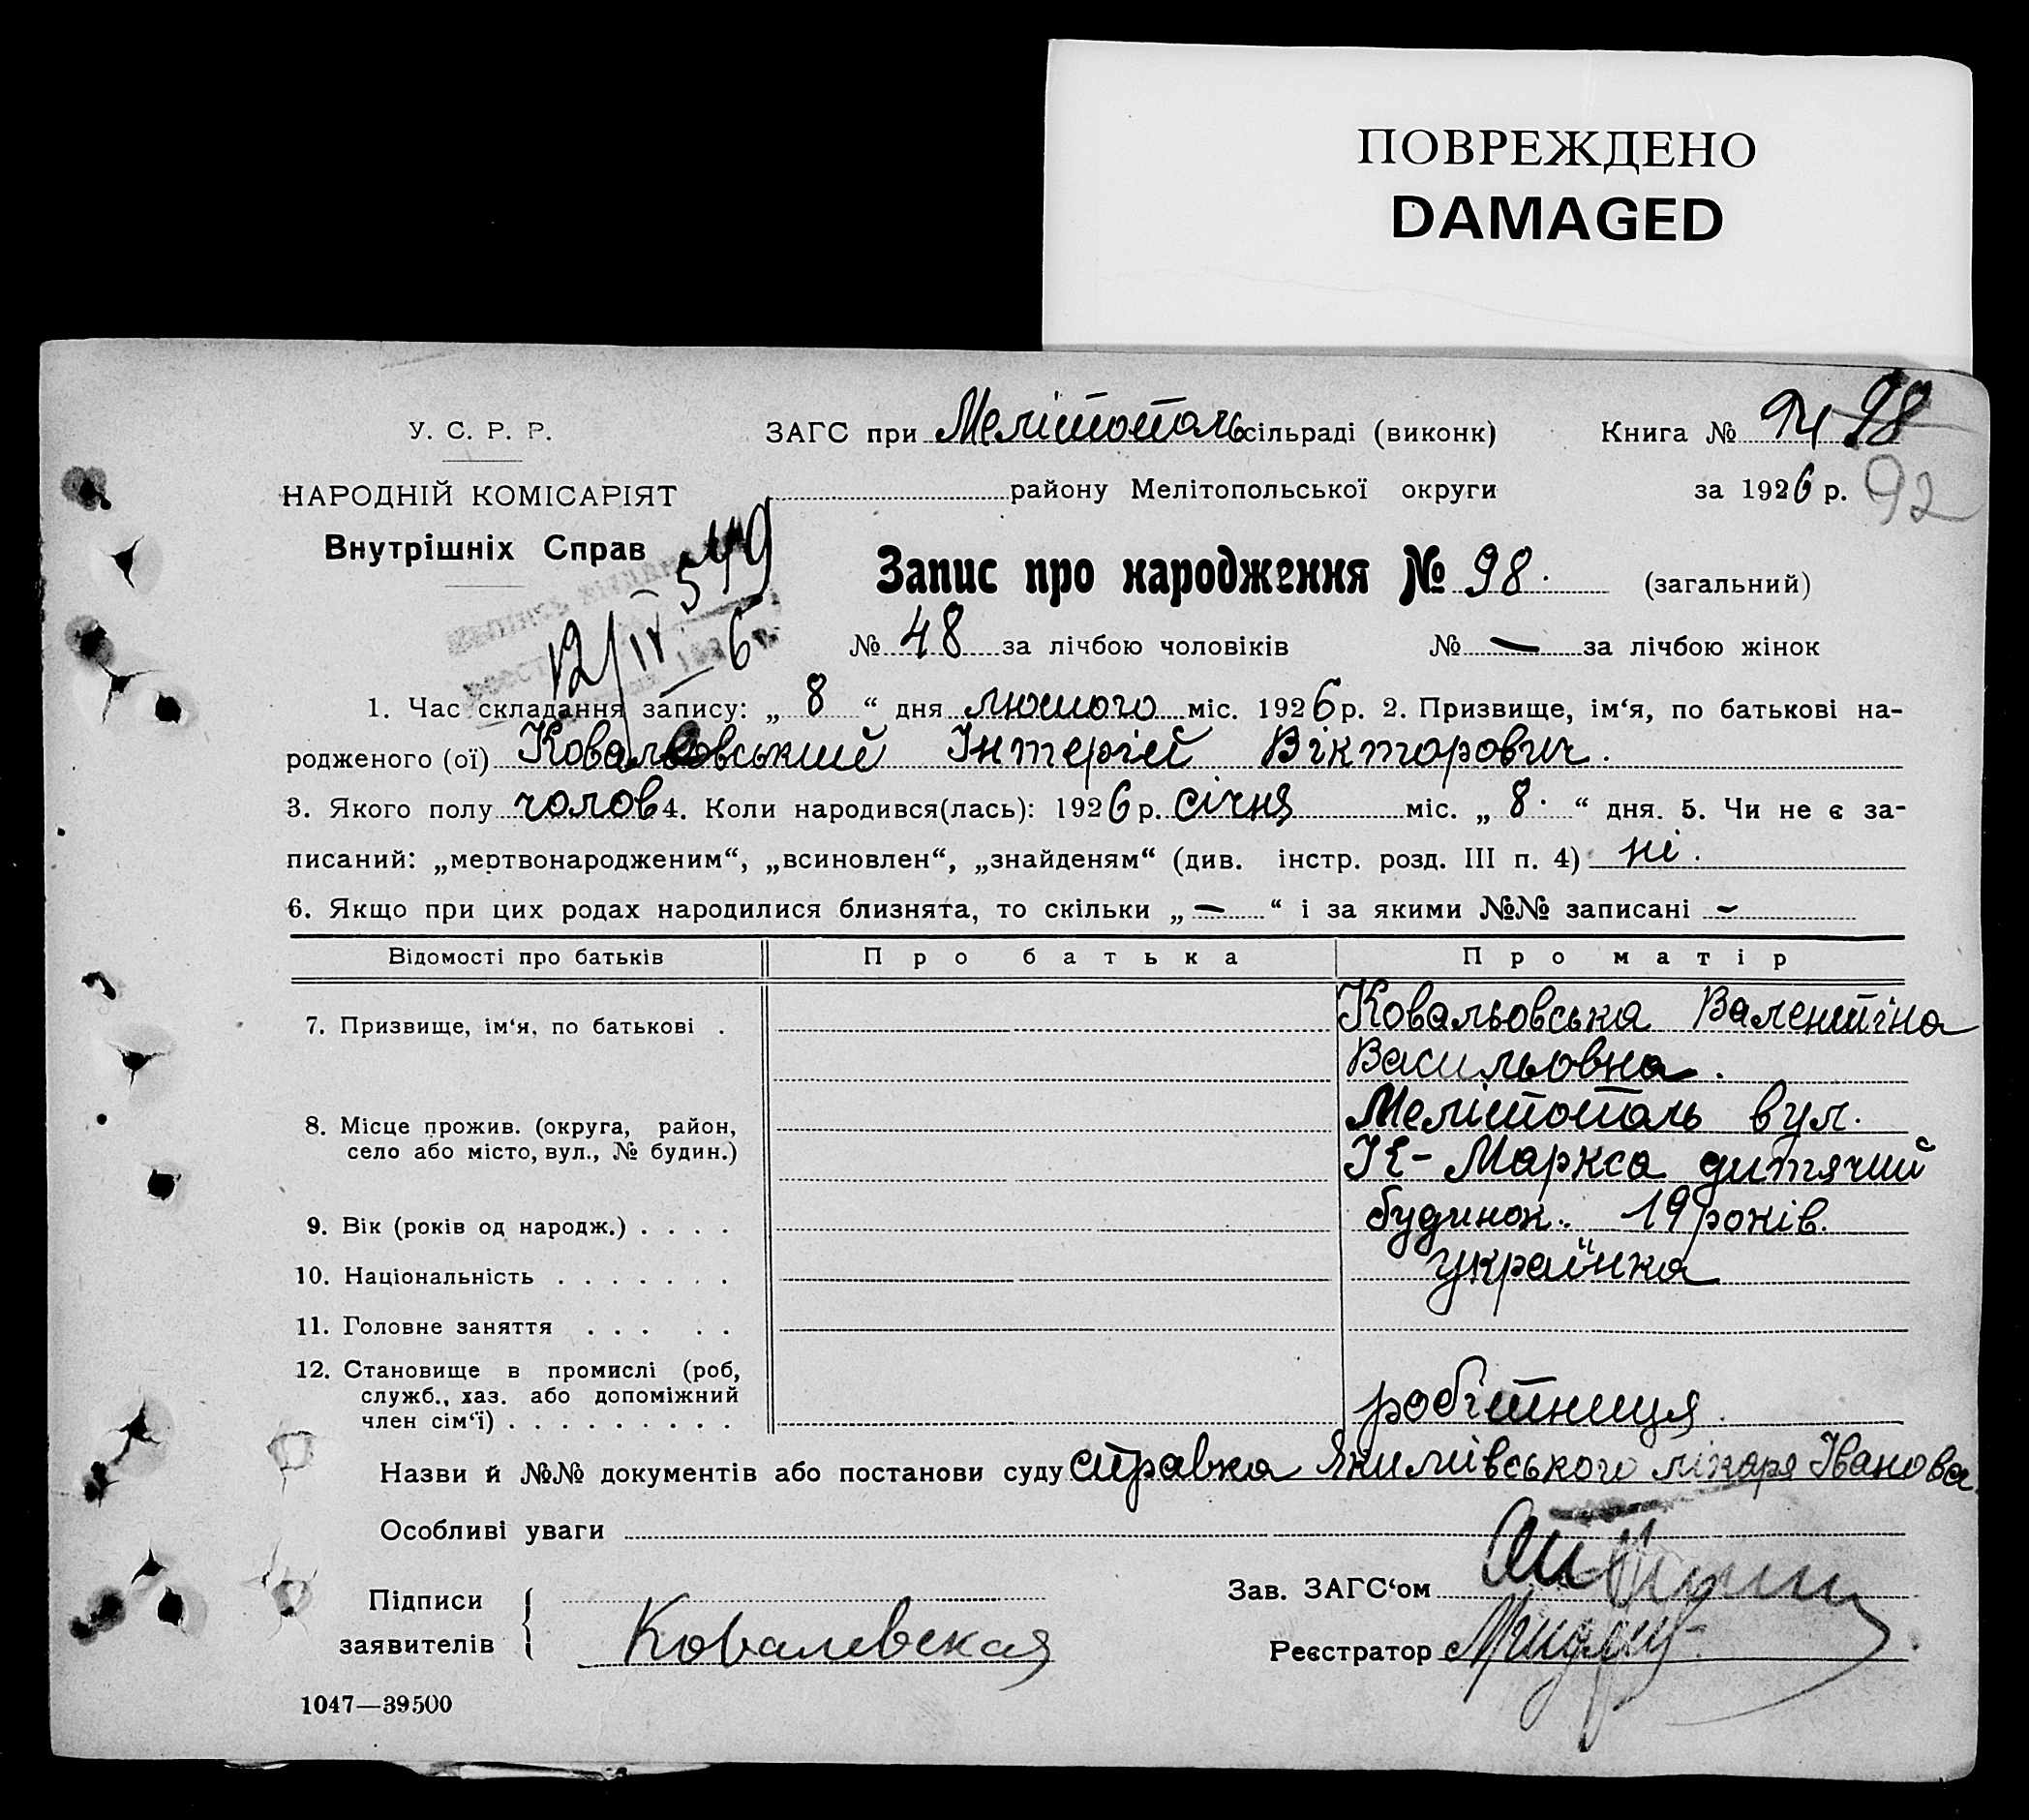 ПОВРЕЖДЕНО
DAMAGED
У. С. Р. Р. ЗАГС при Мелітополь сільраді (виконк) Книга № 98
НАРОДНІЙ КОМІСАРІЯТ району Мелітопольської округи за 1926 р. 92
Внутрішніх Справ 549
Запис про народження № 98. (загальний)
12/IV 6
№ 48 за лічбою чоловіків № — за лічбою жінок
1. Час складання запису: „ 8 “ дня лютого міс. 1926 р. 2. Призвище, ім‘я, по батькові на-
родженого (ої) Ковальовський Інтергій Вікторович.
3. Якого полу чолов 4. Коли народився(лась): 1926 р. січня міс. „ 8. “ дня. 5. Чи не є за-
писаний: „мертвонародженим“, „всиновлен“, „знайденям“ (див. інстр. розд. III п. 4) ні.
6. Якщо при цих родах народилися близнята, то скільки „ — “ і за якими №№ записані —
Відомості про батьків Про батька Про матір
7. Призвище, ім‘я, по батькові . Ковальовська Валентіна
Васильовна.
8. Місце прожив. (округа, район, Мелітополь вул.
село або місто, вул., № будин.) К-Маркса дитячий
9. Вік (років од народж.) . . . . будинок. 19 років.
10. Національність . . . . . . . українка
11. Головне заняття . . . . .
12. Становище в промислі (роб,
служб., хаз. або допоміжний
член сім‘ї) . . . . . . . . . робітниця.
Назви й №№ документів або постанови суду справка Якимівського лікаря Іванова
Особливі уваги
Підписи Зав. ЗАГС‘ом
заявителів Ковалевская Реєстратор
1047—39500